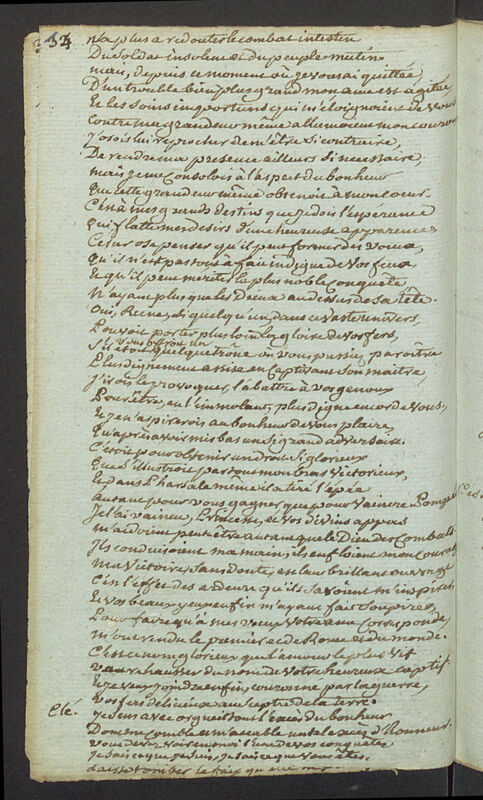 254
n'a plus a redouter le combat intestin
Du soldat insolent et du peuple mutin
mais, depuis ce moment où je vous ai quittée,
D'un trouble bien plus grand mon ame est agitée,
Et les soins importuns qui m'éloignoient de vous
Contre ma grandeur même allumoient mon couroux
J'osois lui reprocher de m'être si contraire,
De rendre ma presence ailleurs si necessaire,
mais je me consolois à l'aspect du bonheur
Que cette grandeur même obtenoit à mon coeur.
C'est à mes grands destins que je dois l'espérance
Qui flatte mes desirs d'une heureuse apparence
César ose penser qu'il peut former des voeux,
Qu'il n'est pas tout à fait indigne de vos feux
Et qu'il peut mériter la plus noble conquête
N'ayant plus que les Dieux au dessus de sa tête.
Oui, Reine, si quelqu'un dans ce vaste univers
Pouvoit porter plus loin la gloire de vos fers,
S'il vous offroit un
S'il étoit quelque trone où vous pussiez paroître
Plus dignement assise en captivant son maître,
J'irois le provoquer, l'abattre à vos genoux
Pour être, en l'immolant, plus digne encor de vous,
Et je n'aspirerois au bonheur de vous plaire,
Qu'après avoir mis bas un si grand adversaire.
C'étoit pour obtenir un droit si glorieux
Que s'illustroit partout mon bras victorieux,
Et dans Pharsale même il a tiré l'épée
autant pour vous gagner que pour vaincre Pompée
Je l'ai vaincu, Princesse, et vos divins appas
m'aidoient peut être autant que le Dieu des Combats
Ils conduisoient ma main, ils enfloient mon courage
Ma victoire, sans doute, est leur brillant ouvrage
C'est l'effet des ardeurs qu'ils savoient m'inspirer,
Et vos beaux yeux enfin m'ayant fait soupirer,
Pour faire qu'à mes voeux votre ame corresponde,
m'ont rendu le premier et de Rome et du monde.
C'est ce nom glorieux que l'amour le plus vif
veut rehausser du nom de votre heureux captif
Et je veux joindre enfin, couronné par la guerre,
vos fers délicieux au sceptre de la terre.
Clé.
Je sens avec orgueil tout l'excès du bonheur
Dont me comble et m'accable un tel excès d'Honneur.
vous devez voir en moi l'une de vos conquêtes
Je sais ce que je suis, je sais ce que vous êtes.